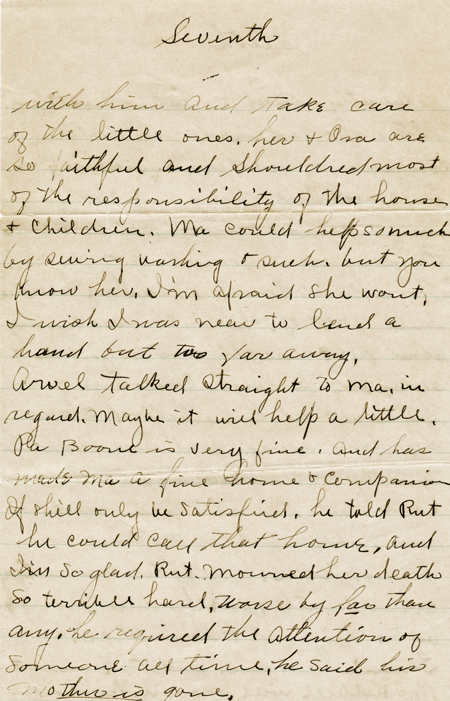 Seventh
with him and take care
of the little ones. her & Ora are
so faithful and shouldred most
of the responsibility of the house
& children. Ma could help so much
by sewing washing & such. but you
know her. I'm afraid she wont,
I wish I was near to lend a
hand but too far away.
Arvel talked straight to Ma. in
regard. Maybe it will help a little.
Pa Boone is very fine. And has
made Ma a fine home & companion
If shell only be satisfied. he told Rut
he could call that home, and
I'm so glad. Rut. mourned her death
so terrible hard, worse by far than
any. he required the attention of
someone all time, he said his
mother is gone.